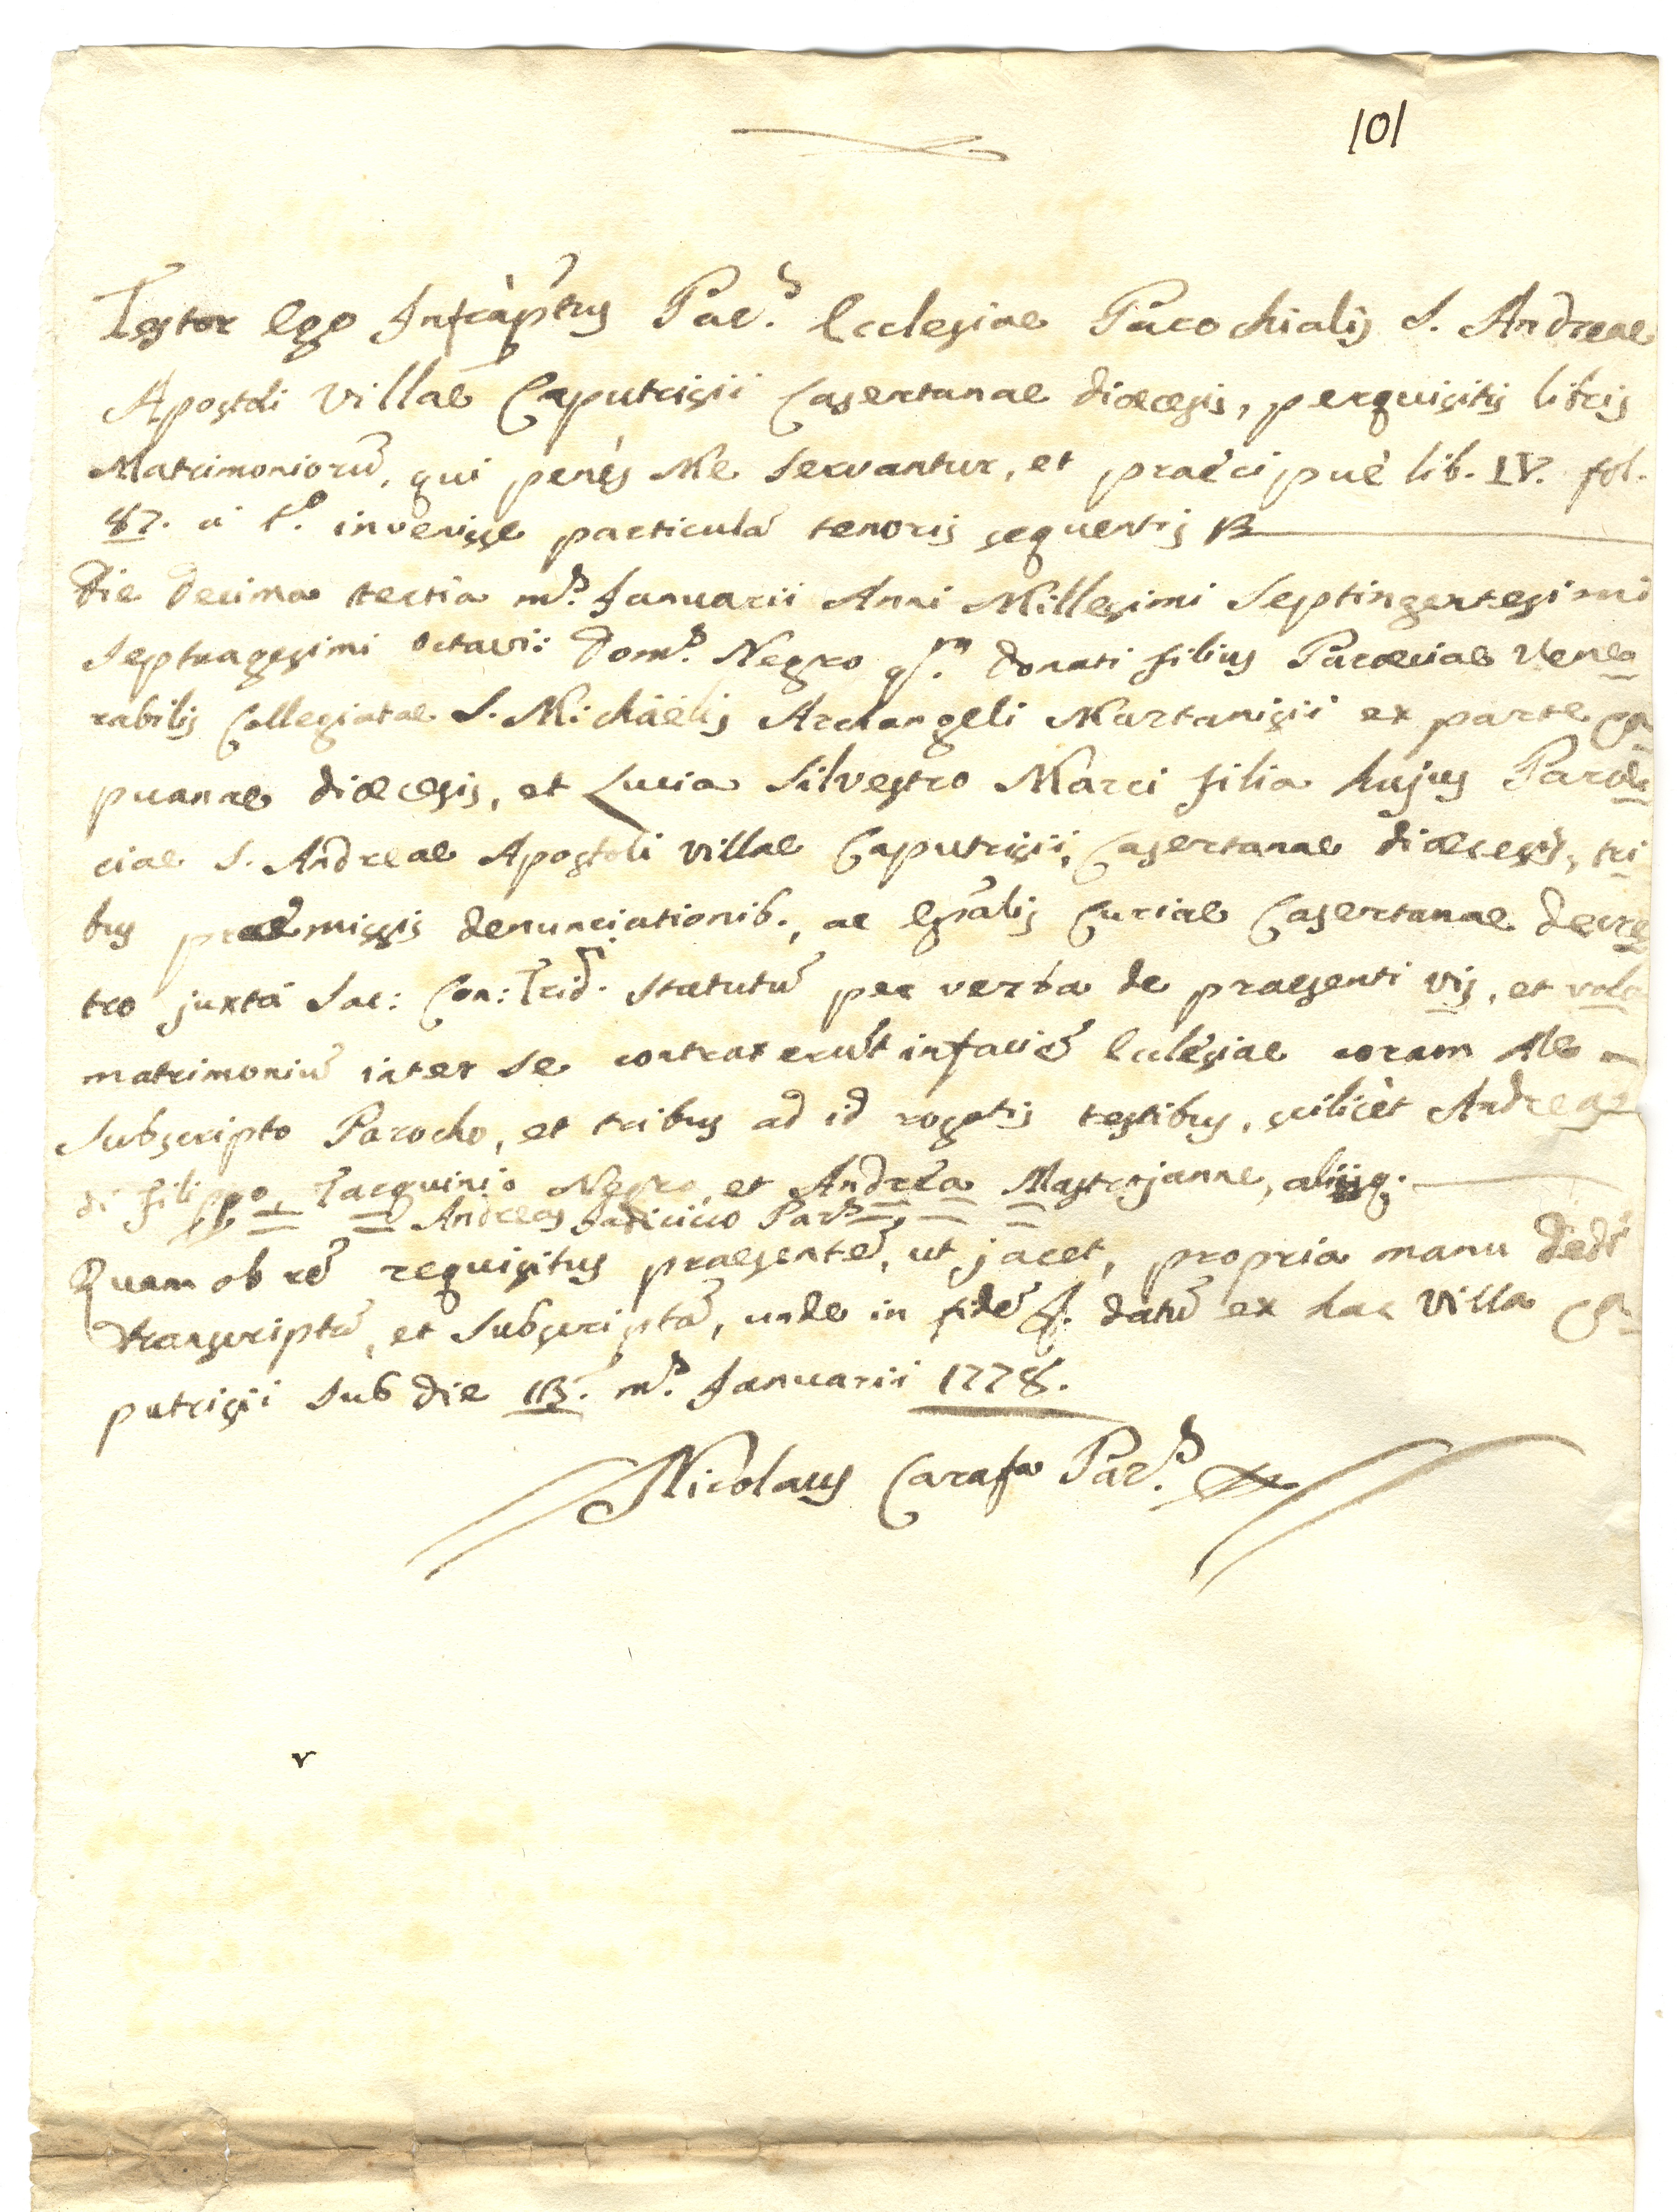 101
Testor ego Infràptus Par.s Ecclesiae Parochialis S. Andreae
Apostoli Villae Caputrisii Casertanae dioecesis, perquisitis libris
Matrimoniorũ, qui penés Me servantur, et praècipuè lib. IV. fol.
87. a t.o invenisse particulã tenoris sequentis
Die decima tertia m.s Januarii Anni Millesimi Septingentesimi
Septuagesimi octavi: Dom.s Negro q.m Donati filius Paroeciae Vene
rabilis Collegiatae S. Michäelis Archangeli Martanisii ex parte Ca
puanae dioecesis, et Lucia Silvestro Marci filia hujus Paroe
ciae S. Andreae Apostoli villae Caputrisii, Casertanae dioecesis, tri
bus praemissis denunciationib., ac Epãlis Curiae Casertanae decre
tro juxtà Sac: Con: Trid. statutũ per verba de praesenti vis, et vole
matrimoniũ inter se contraxerũt in faciẽ Ecclèsiae coram Me
Subscripto Parocho, et tribus ad id rogatis testibus, scilicèt Andrea
di Filippo, Tarquinio Negro, et Andrèa Mastrojanne, aliisq.
Andreas Jadicicco Par.s
Quam ob rẽ requisitus praesentẽ, ut jacet, propria manu dedi
transcriptã, et Subscriptã, unde in fidẽ datũ ex hac Villa Ca
putrisii sub die 13. m.s Januarii 1778.
Nicolaus Carafa Par.s
v